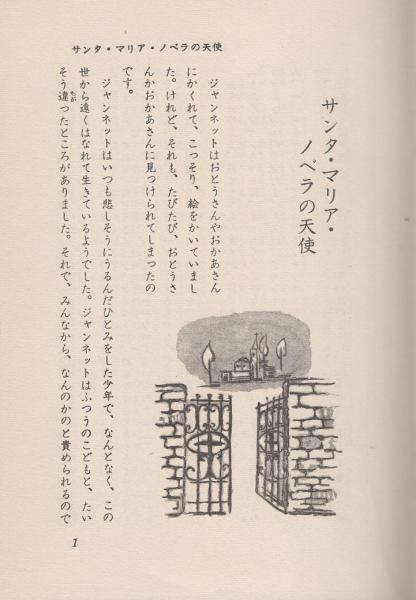 サンタ・マリア・ノベラの天使
サンタ・マリア・
ノベラの天使
ジャンネットはおとうさんやおかあさん
にかくれて、こっそり、絵をかいていまし
た。けれど、それも、たびたび、おとうさ
んかおかあさんに見つけられてしまったの
です。
ジャンネットはいつも悲しそうにうるんだひとみをした少年で、なんとなく、この
世から遠くはなれて生きているようでした。ジャンネットはふつうのこどもと、たい
そう違ったところがありました。それで、みんなから、なんのかのと責められるので
ちが
1